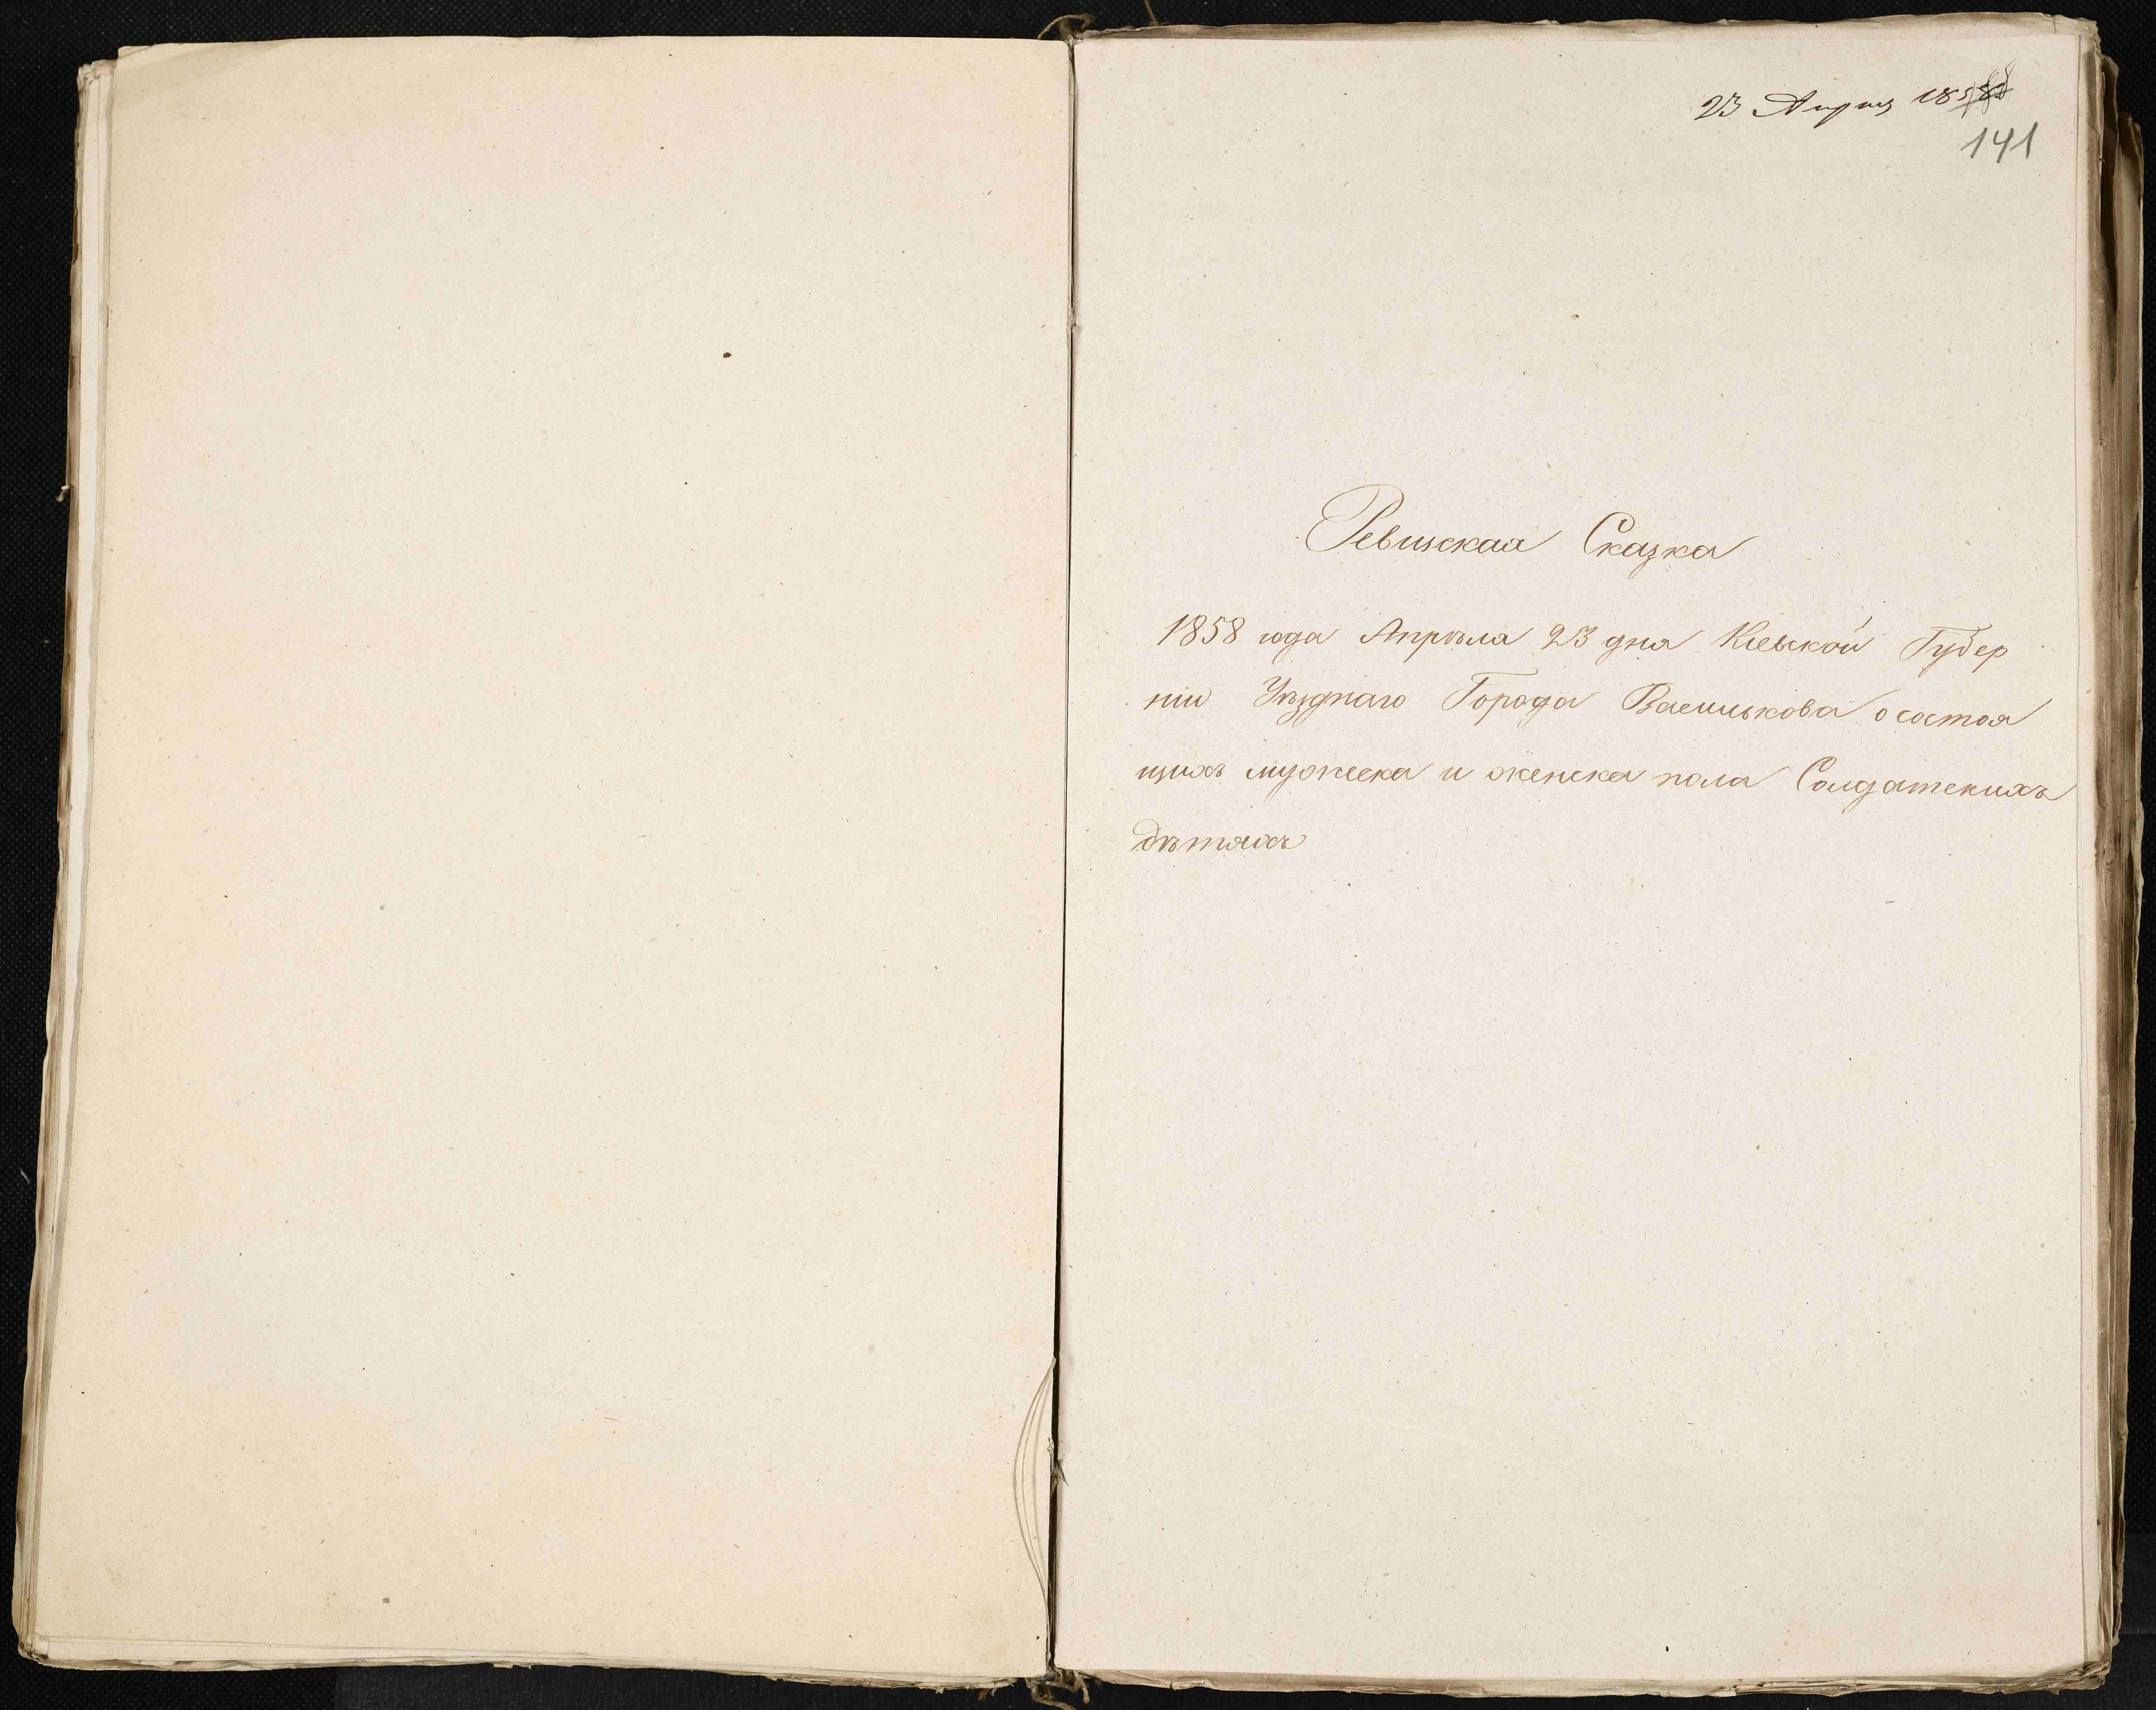 23 Апреля 1858
141
Ревизская Сказка
1858 года Апрѣля 23 дня Кіевской Губер
ніи Уѣзднаго Города Василькова о состоя
щихъ мужеска и женска пола Солдатскихъ
дѣтяхъ